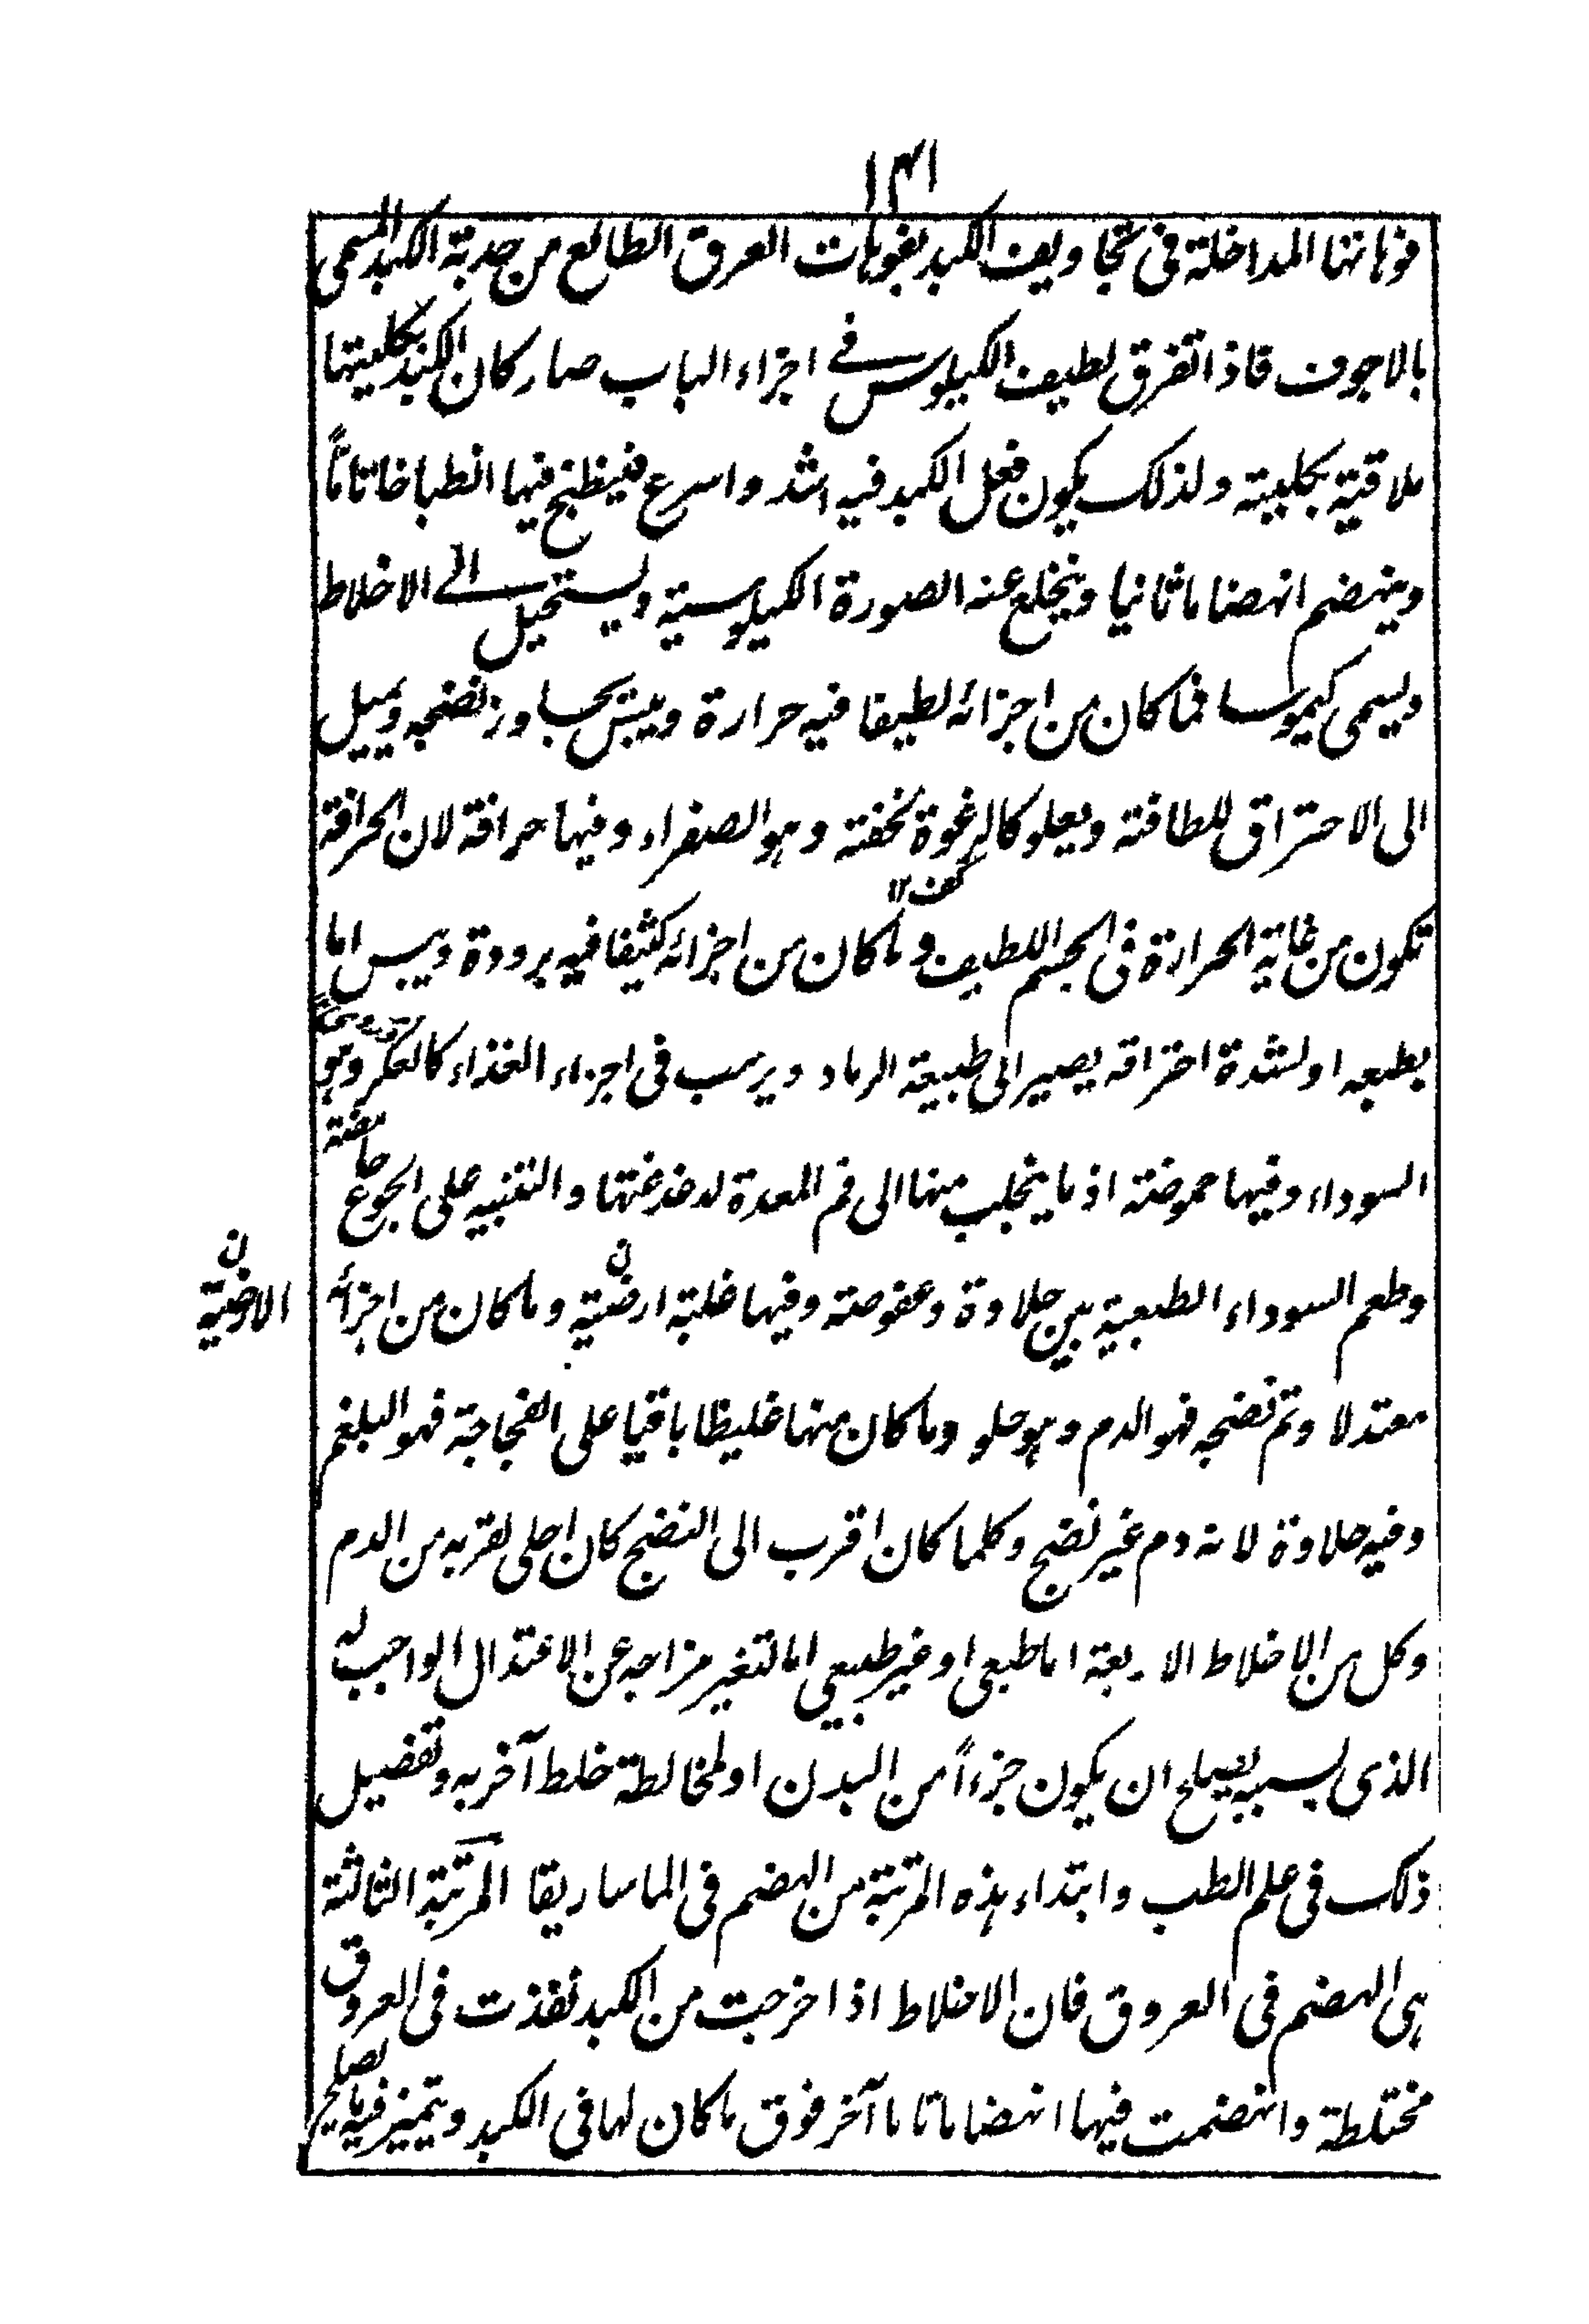 ١٣١
فوهاتها المداخلة فى تجاويف الكبد بفوهات العرق الطالع من حدبة الكبد المسمى
بالاجوف فاذا تفرق لطيف الكيلوس فى اجزاء الباب صار كان الكبد بكليتها
ملاقية بكليته ولذلك يكون فعل الكبد فيه اشد واسرع فينطبخ فيها انطباخا تاماً
وينهضم انهضاما ثانيا وينخلع عنه الصورة الكيلوسية ويستحيل الى الاخلاط
ويسمى كيموسا فما كان من اجزائه لطيفا فيه حرارة ويبس يجاوز نضجه ويميل
الى الاحتراق للطافته ويعلو كالرغوة لخفته وهو الصفراء وفيها حرافة لان الحرافة
تكون من غاية الحرارة فى الجسم اللطيف وما كان من اجزائه كثيفا فيه برودة ويبس اما
بطبعه او لشدة احتراقه يصير الى طبيعة الرماد ويرسب فى اجزاء الغذاء كالعكر وهو
السوداء وفيها حموضة اذ ما ينجلب منها الى فم المعدة لدغدغتها والتنبيه على الجوع حامضة
وطعم السوداء الطبعية بين حلاوة وعفوصة وفيها غلبة ارضية وما كان من اجزائه
ن الارضية
معتدلا وتم نضجه فهو الدم وهو حلو وما كان منها غليظا باقيا على الفجاجة فهو البلغم
وفيه حلاوة لانه دم غير نضج وكلما كان اقرب الى النضج كان احلى لقربه من الدم
وكل من الاخلاط الاربعة اما طبعى او غير طبيعى اما لتغير مزاجه عن الاعتدال الواجب له
الذى بسببه يصلح ان يكون جزءاً من البدن او لمخالطة خلط آخر به وتفصيل
ذلك فى علم الطب وابتداء هذه المرتبة من الهضم فى الماساريقا المرتبة الثالثة
هى الهضم فى العروق فان الاخلاط اذا خرجت من الكبد نفذت فى العروق
مختلطة وانهضمت فيها انهضاما تاما آخر فوق ما كان لها فى الكبد ويتميز فيه ما يصلح